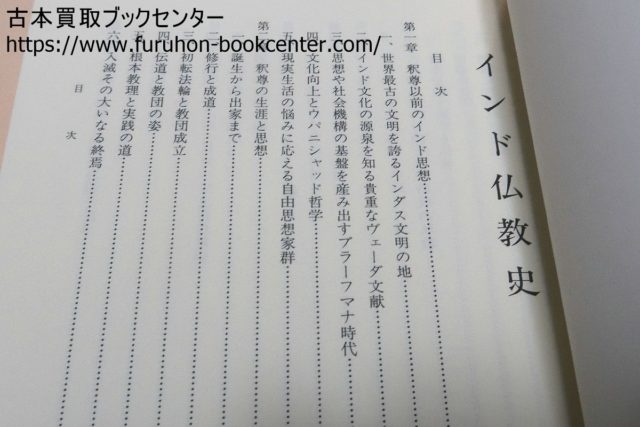 古本買取ブックセンター
https://www.furuhon-bookcenter.com/
インド仏教史
目次
第一章 釈尊以前のインド思想
一、世界最古の文明を誇るインダス文明の地
二、インド文化の源泉を知る貴重なヴェーダ文献
三、思想や社会機構の基盤を産み出すブラーフマナ時代
四、文化向上とウパニシャッド哲学
五、現実生活の悩みに応える自由思想家群
第二章 釈尊の生涯と思想
一、誕生から出家まで
二、修行と成道
三、初転法輪と教団成立
四、伝道と教団の姿
五、根本教理と実践の道
六、入滅その大いなる終焉
目次